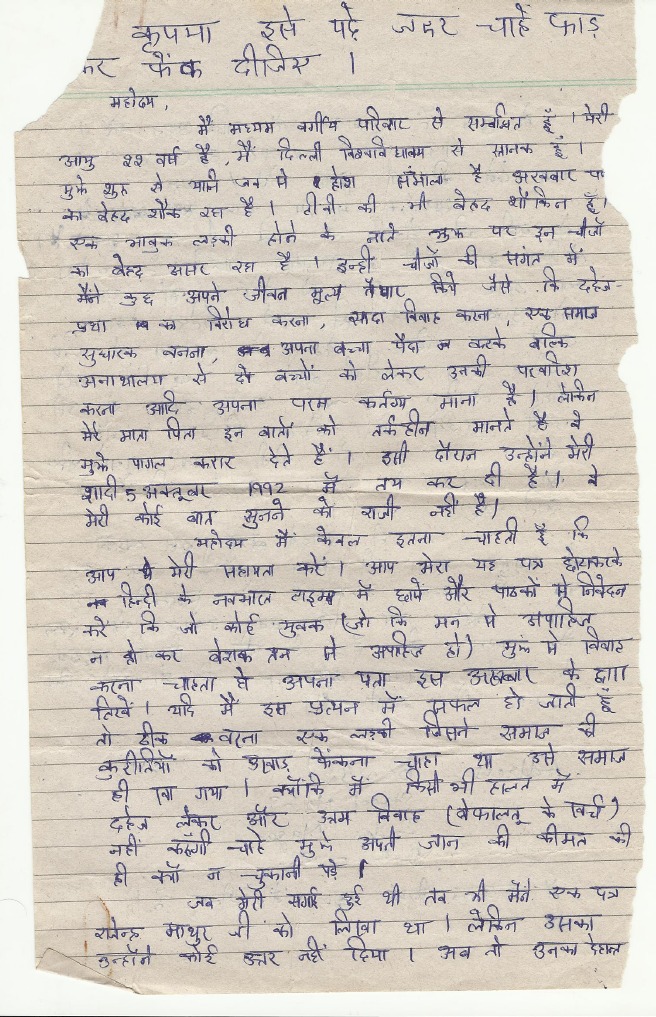 कृपया इसे पढ़े जरूर चाहे फाड़
कर फेंक दीजिए ।
महोदय,
मैं मध्यम वर्गीय परिवार से सम्बन्धित हूँ । मेरी
आयु २२ वर्ष है, मैं दिल्ली विश्वविद्यालय से स्नातक हूँ ।
मुझे शुरू से यानि जब से होश संभाला है अखबार
का बेहद शौक रहा है । टी.वी की भी बेहद शौकिन हूँ ।
एक भावुक लड़की होने के नाते मुझ पर इन चीजों
का बेहद असर रहा है । इन्ही चीजों की संगत में
मैंने कुछ अपने जीवन मूल्य तैयार किये जैसे कि दहेज-
प्रथा का विरोध करना, सादा विवाह करना, एक समाज
सुधारक बनना, अपना बच्चा पैदा न करके बल्कि
अनाथालय से दो बच्चों को लेकर उनकी परवरिश
करना आदि अपना परम कर्तव्य माना है । लेकिन
मेरे माता पिता इन बातों को तर्कहीन मानते है वे
मुझे पागल करार देते हैं । इसी दौरान उन्होंने मेरी
शादी 5 अक्तूबर 1992 में तय कर दी है । वे
मेरी कोई बात सुनने को राजी नहीं है ।
महोदय मैं केवल इतना चाहती हूँ कि
आप मेरी सहायता करें । आप मेरा यह पत्र
हिन्दी के नवभारत टाइम्स में छापें और पाठकों से निवेदन
करे कि जो कोई युवक (जो कि मन से अपाहिज
न हो कर बेशक तन से अपाहिज हो) मुझ से विवाह
करना चाहता हो अपना पता इस अखबार के द्वारा
लिखें । यदि मैं इस प्रयत्न में सफल हो जाती हूँ
तो ठीक वरना एक लड़की जिसने समाज की
कुरीतियों को उखाड़ फेंकना चाहा था उसे समाज
ही खा गया । क्योंकि मैं किसी भी हालत में
दहेज लेकर और उत्तम विवाह (बेफालतू के खर्चे)
नहीं करूंगी चाहे मुझे अपनी जान की कीमत की
ही क्यों न चुकानी पड़े ।
जब मेरी सगाई हुई थी तब भी मैंने एक पत्र
राजेन्द्र माथुर जी को लिखा था । लेकिन उसका
उन्होंने कोई उत्तर नहीं दिया । अब तो उनका देहान्त